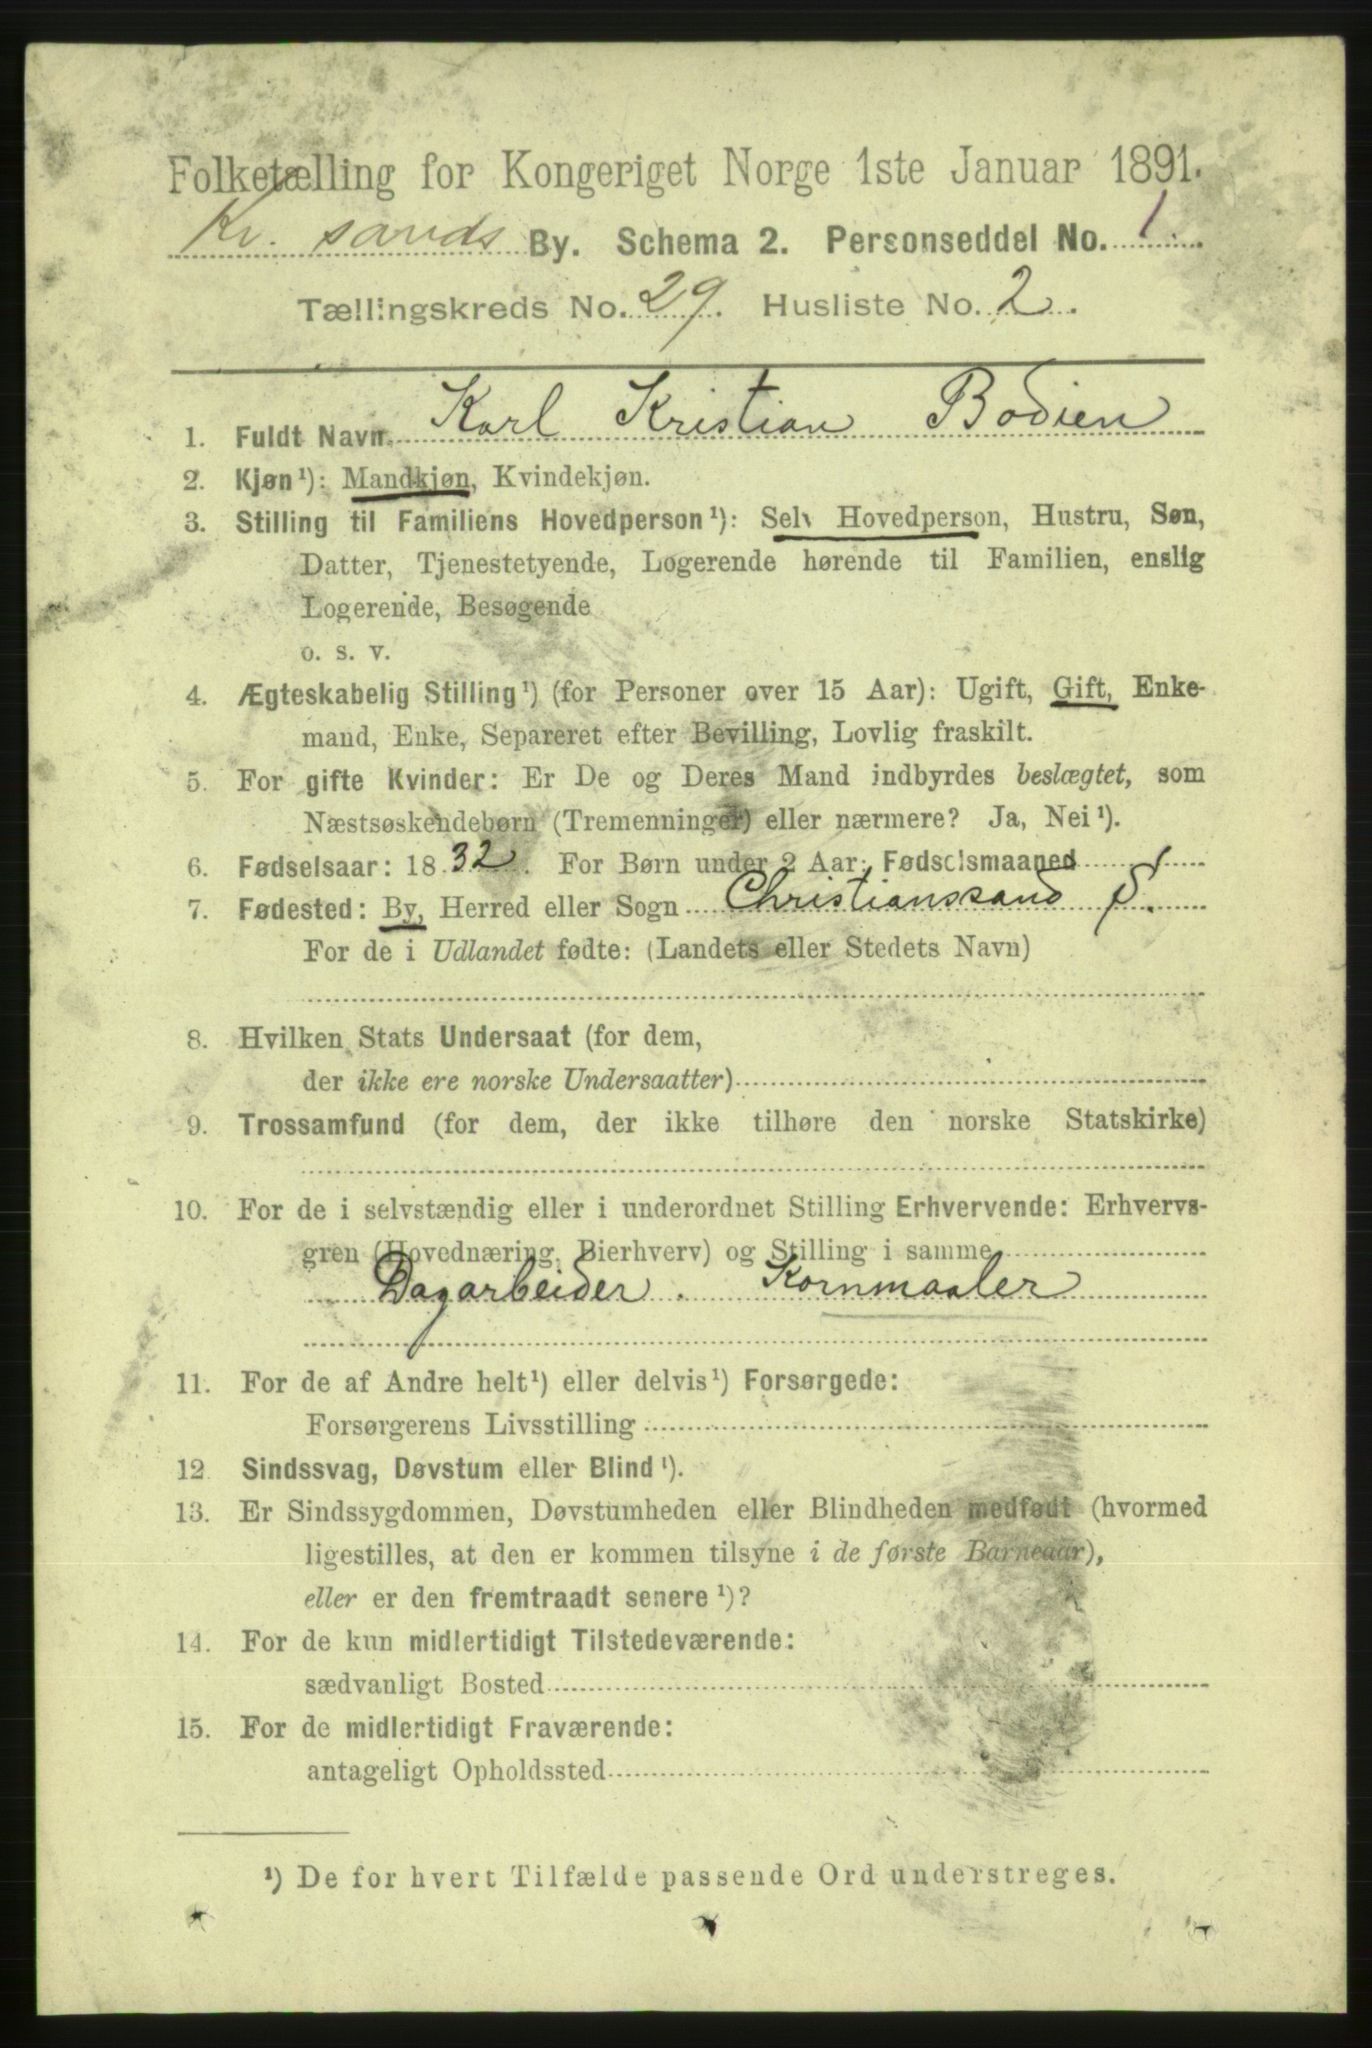 Folketælling for Kongeriget Norge 1ste Januar 1891.
Kr. sands By. Schema 2. Personseddel No. 1.
Tællingskreds No. 29. Husliste No. 2.
1. Fuldt Navn Karl Kristian Bodien
2. Kjøn¹): Mandkjøn, Kvindekjøn.
3. Stilling til Familiens Hovedperson¹): Selv Hovedperson, Hustru, Søn,
Datter, Tjenestetyende, Logerende hørende til Familien, enslig
Logerende, Besøgende
o. s. v.
4. Ægteskabelig Stilling¹) (for Personer over 15 Aar): Ugift, Gift, Enke-
mand, Enke, Separeret efter Bevilling, Lovlig fraskilt.
5. For gifte Kvinder: Er De og Deres Mand indbyrdes beslægtet, som
Næstsøskendebørn (Tremenninger) eller nærmere? Ja, Nei¹).
6. Fødselsaar: 1832. For Børn under 2 Aar: Fødselsmaaned
7. Fødested: By, Herred eller Sogn Christianssand S.
For de i Udlandet fødte: (Landets eller Stedets Navn)
8. Hvilken Stats Undersaat (for dem,
der ikke ere norske Undersaatter)
9. Trossamfund (for dem, der ikke tilhøre den norske Statskirke)
10. For de i selvstændig eller i underordnet Stilling Erhvervende: Erhvervs-
gren (Hovednæring, Bierhverv) og Stilling i samme
Dagarbeider. Kornmaaler
11. For de af Andre helt¹) eller delvis¹) Forsørgede:
Forsørgerens Livsstilling
12 Sindssvag, Døvstum eller Blind¹).
13. Er Sindssygdommen, Døvstumheden eller Blindheden medfødt (hvormed
ligestilles, at den er kommen tilsyne i de første Barneaar),
eller er den fremtraadt senere¹)?
14. For de kun midlertidigt Tilstedeværende:
sædvanligt Bosted
15. For de midlertidigt Fraværende:
antageligt Opholdssted
¹) De for hvert Tilfælde passende Ord understreges.